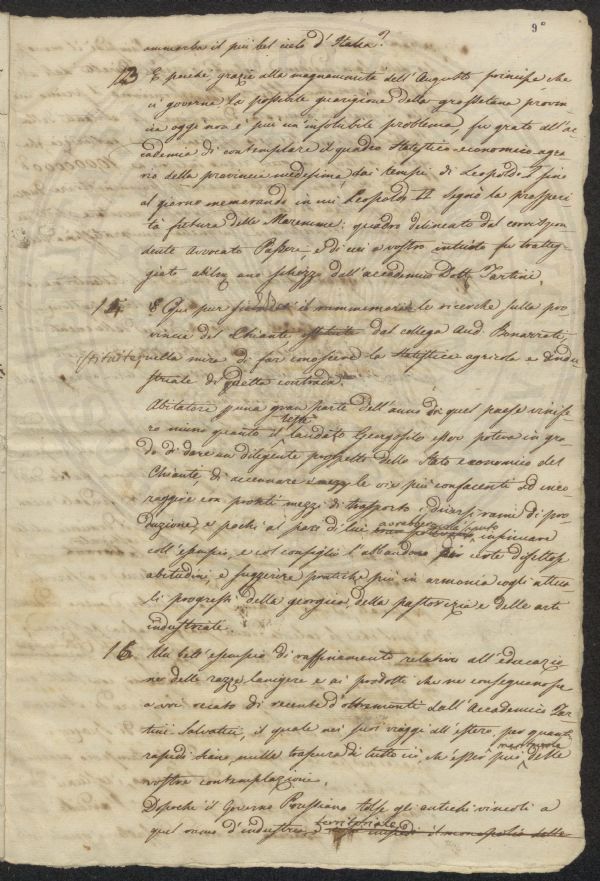 9°
ammorba il più bel cielo d'Italia?
13 E poichè grazie alla magnanimità dell'Augusto principe, che
ci governa la possibile guarigione della grossetana provin
cia oggi non è più un insolubile problema, fu grato all'ac
cademia di contemplare il quadro statistico-economico-agra
rio della provincia medesima dai tempi di Leopoldo I fino
al giorno memorando in cui Leopoldo II segnò la prosperi
tà futura delle Maremme: quadro delineato dal corrispon
dente Avvocato e di cui a vostro fu tratteg
giato abil uno schizzo dall'accademico Dott. Tartini
14 Qui pur il rammemorare le ricerche sulla pro
vincia del Chianti, dal collega And. Bonarroti
istituite, nella mira di far conoscere la statistica agricola e indu
striale di quella contrada.
Abitatore p una gran parte dell'anno di quel paese vinife
ro niuno quanto il lodato Georgofilo esser poteva in gra
do di dare un diligente prospetto dello stato economico del
Chianti, di accennare i mezzi le vie più confacenti ad inco
raggire con pronti mezzi di trasporto i diversi rami di pro
duzione, e pochi al pari di lui avrebber potuto insinuare
coll'esempio, e col consiglio l'abbandono di certe difettose
abitudini, e suggerire pratiche più in armonia cogli attua
li progressi della georgica, della pastorizia e delle arti
industriali.
16 Un bell'esempio di raffinamento relativo all'educazio
ne delle razze lanigere e ai prodotti che ne conseguono fu
a voi recato di recente d'oltramonti dall'Accademico Tar
tini Salvatici, il quale nei suoi viaggi all'estero, per quanto
rapidi siano, nulla trascura di tutto ciò, ch'esser può meritevole delle
vostre contemplazioni.
Dopochè il Governo Prussiano tolse gli antichi vincoli a
quel ramo d'industria territoriale il monopolio delle